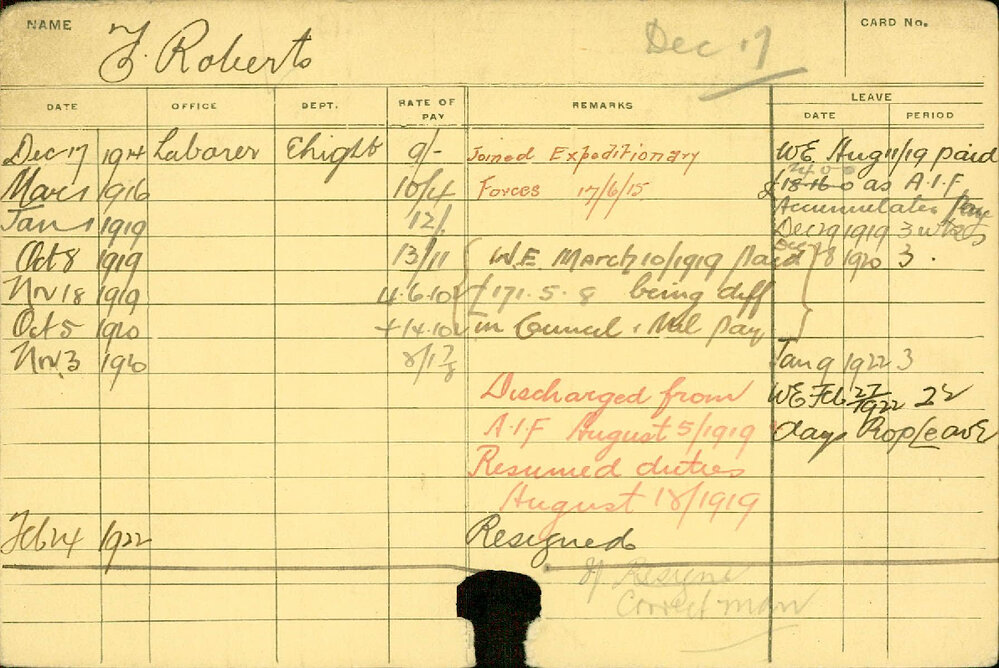 NAME
F. Roberts
Dec 17
CARD No.
DATE OFFICE DEPT. RATE OF PAY REMARKS LEAVE
DATE PERIOD
Dec 17 1914 Laborer 9/- Joined Expeditionary WE Aug 11/19 paid
Mar 1 1916 10/4 Forces 17/6/15 £18-16-0 as A.I.F
Jan 1 1919 12/. Accumulated Pay
Dec 29 1919 3 wks
Oct 8 1919 13/11 W.E March 10/1919 paid 1920 3.
Nov 18 1919 4.6.10 £171.5.8 being diff
Oct 5 1920 +14.10 in Council & Mil pay
Nov 3 1920 Jan 9 1922 3
Discharged from WE Feb 27/1922 22
A.I.F August 5/1919 days Prop Leave
Resumed duties
August 18/1919
Feb 24 1922 Resigned
If Resigned
Correct man